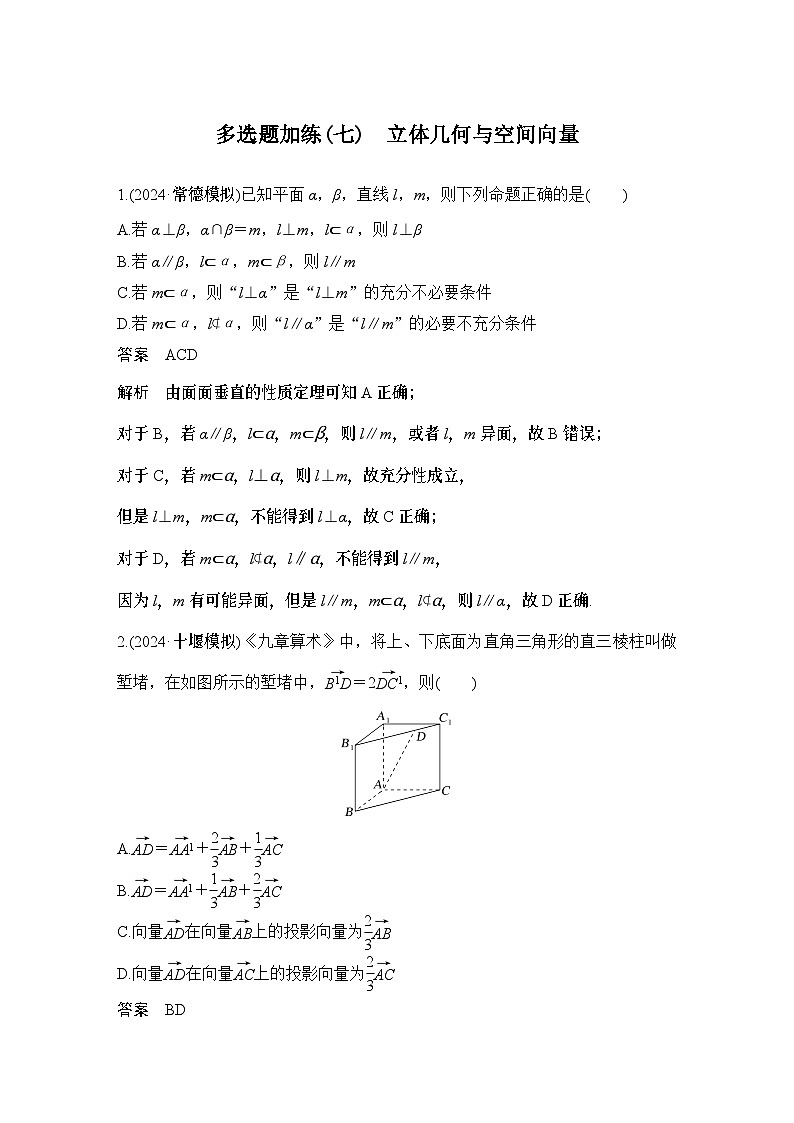 多选题加练(七)　立体几何与空间向量
1.(2024·常德模拟)已知平面α，β，直线l，m，则下列命题正确的是(　　)
A.若α⊥β，α∩β＝m，l⊥m，l⊂α，则l⊥β
B.若α∥β，l⊂α，m⊂β，则l∥m
C.若m⊂α，则“l⊥α”是“l⊥m”的充分不必要条件
D.若m⊂α，l⊄α，则“l∥α”是“l∥m”的必要不充分条件
答案　ACD
解析　由面面垂直的性质定理可知A正确；
对于B，若α∥β，l⊂α，m⊂β，则l∥m，或者l，m异面，故B错误；
对于C，若m⊂α，l⊥α，则l⊥m，故充分性成立，
但是l⊥m，m⊂α，不能得到l⊥α，故C正确；
对于D，若m⊂α，l⊄α，l∥α，不能得到l∥m，
因为l，m有可能异面，但是l∥m，m⊂α，l⊄α，则l∥α，故D正确.
2.(2024·十堰模拟)《九章算术》中，将上、下底面为直角三角形的直三棱柱叫做
堑堵，在如图所示的堑堵中，$\overrightarrow{B_1D}$＝2$\overrightarrow{DC_1}$，则(　　)
A₁ C₁
B₁ D
A C
B
A.$\overrightarrow{AD}$＝$\overrightarrow{AA_1}$＋$\frac{2}{3}\overrightarrow{AB}$＋$\frac{1}{3}\overrightarrow{AC}$
B.$\overrightarrow{AD}$＝$\overrightarrow{AA_1}$＋$\frac{1}{3}\overrightarrow{AB}$＋$\frac{2}{3}\overrightarrow{AC}$
C.向量$\overrightarrow{AD}$在向量$\overrightarrow{AB}$上的投影向量为$\frac{2}{3}\overrightarrow{AB}$
D.向量$\overrightarrow{AD}$在向量$\overrightarrow{AC}$上的投影向量为$\frac{2}{3}\overrightarrow{AC}$
答案　BD